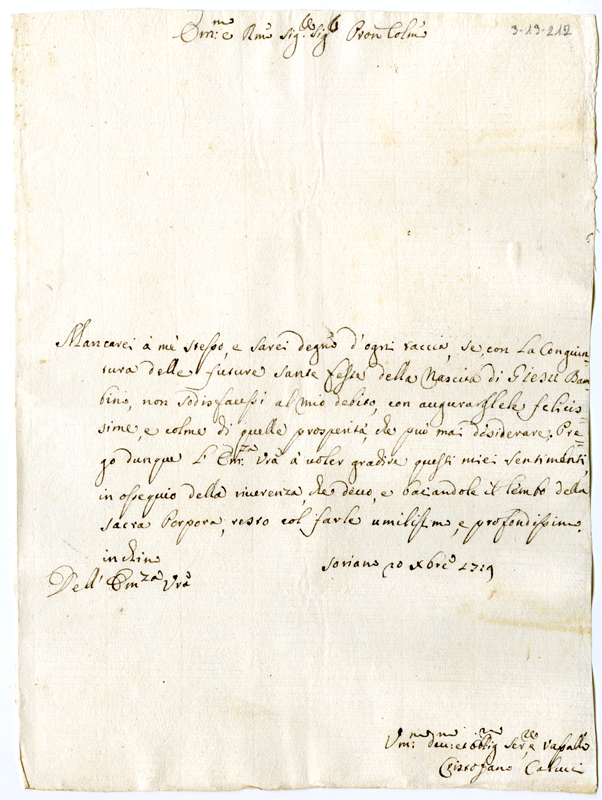 3-19-212
Em:mo e Rmo Sig:re Sig:re Pron Colmo
Mancarei à mè stesso, e sarei degno d'ogni taccia, se, con La Congiun=
tura delle future sante feste della Nascita di Giesu Bam
bino, non sodisfacessi al mio debito, con augurarglele felicis=
sime, e colme di quelle prosperità, che può mai desiderare. Pre=
go dunque L'Em:za Vra à voler gradire questi miei sentimenti,
in ossequio della riverenza, che devo, e baciandole il lembo della
sacra Porpora, resto col farle umilissimo, e profondissimo
inchino
Dell'Emza Vra
Soriano 20 Xbre 1719
Um:mo deu:mo et obblig:mo Ser:re e Vassallo
Cristofano